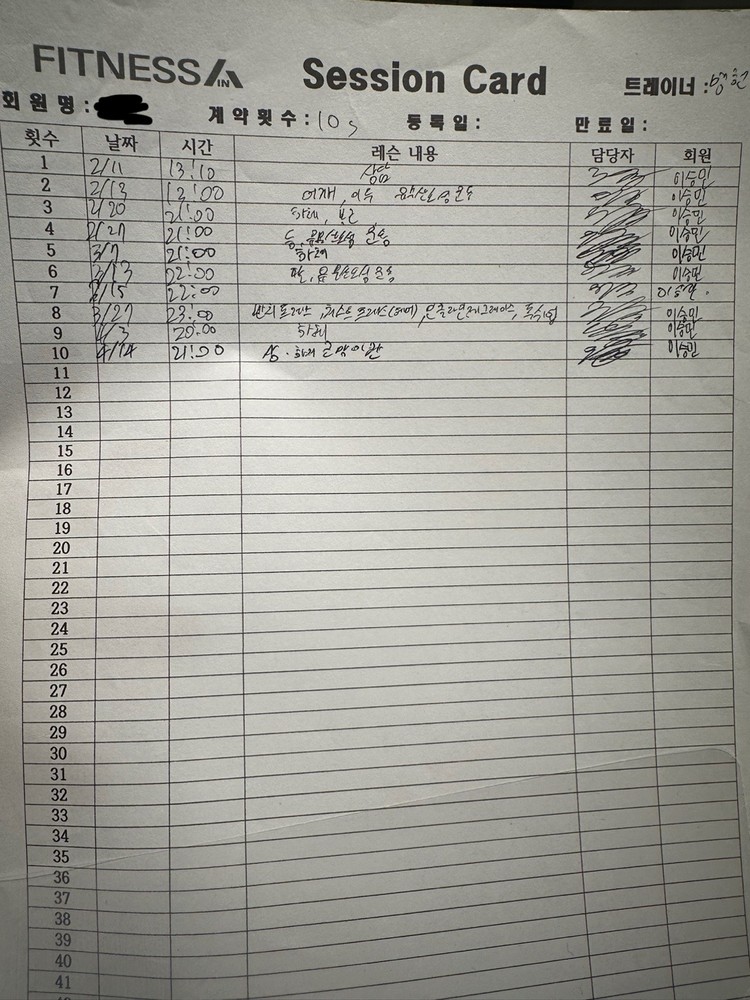 FITNESS IN Session Card 트레이너 :
회 원 명 : 계 약 횟 수 : 10s 등 록 일 : 만 료 일 :
횟수 날짜 시간 레슨 내용 담당자 회원
1 2/11 13:10 상담 이승민
2 2/13 12:00 어깨, 이두 유산소성 운동 이승민
3 2/20 21:00 하체, 이승민
4 2/27 21:00 등, 유산소성 운동 이승민
5 3/7 21:00 하체 이승민
6 3/13 22:00 유산소성 운동 이승민
7 3/15 22:00 이승민
8 3/27 23:00 벤치프레스, 체스트프레스(머신) 이승민
9 4/3 20:00 하체 이승민
10 4/14 21:00 상·하체 이승민
11
12
13
14
15
16
17
18
19
20
21
22
23
24
25
26
27
28
29
30
31
32
33
34
35
36
37
38
39
40
41